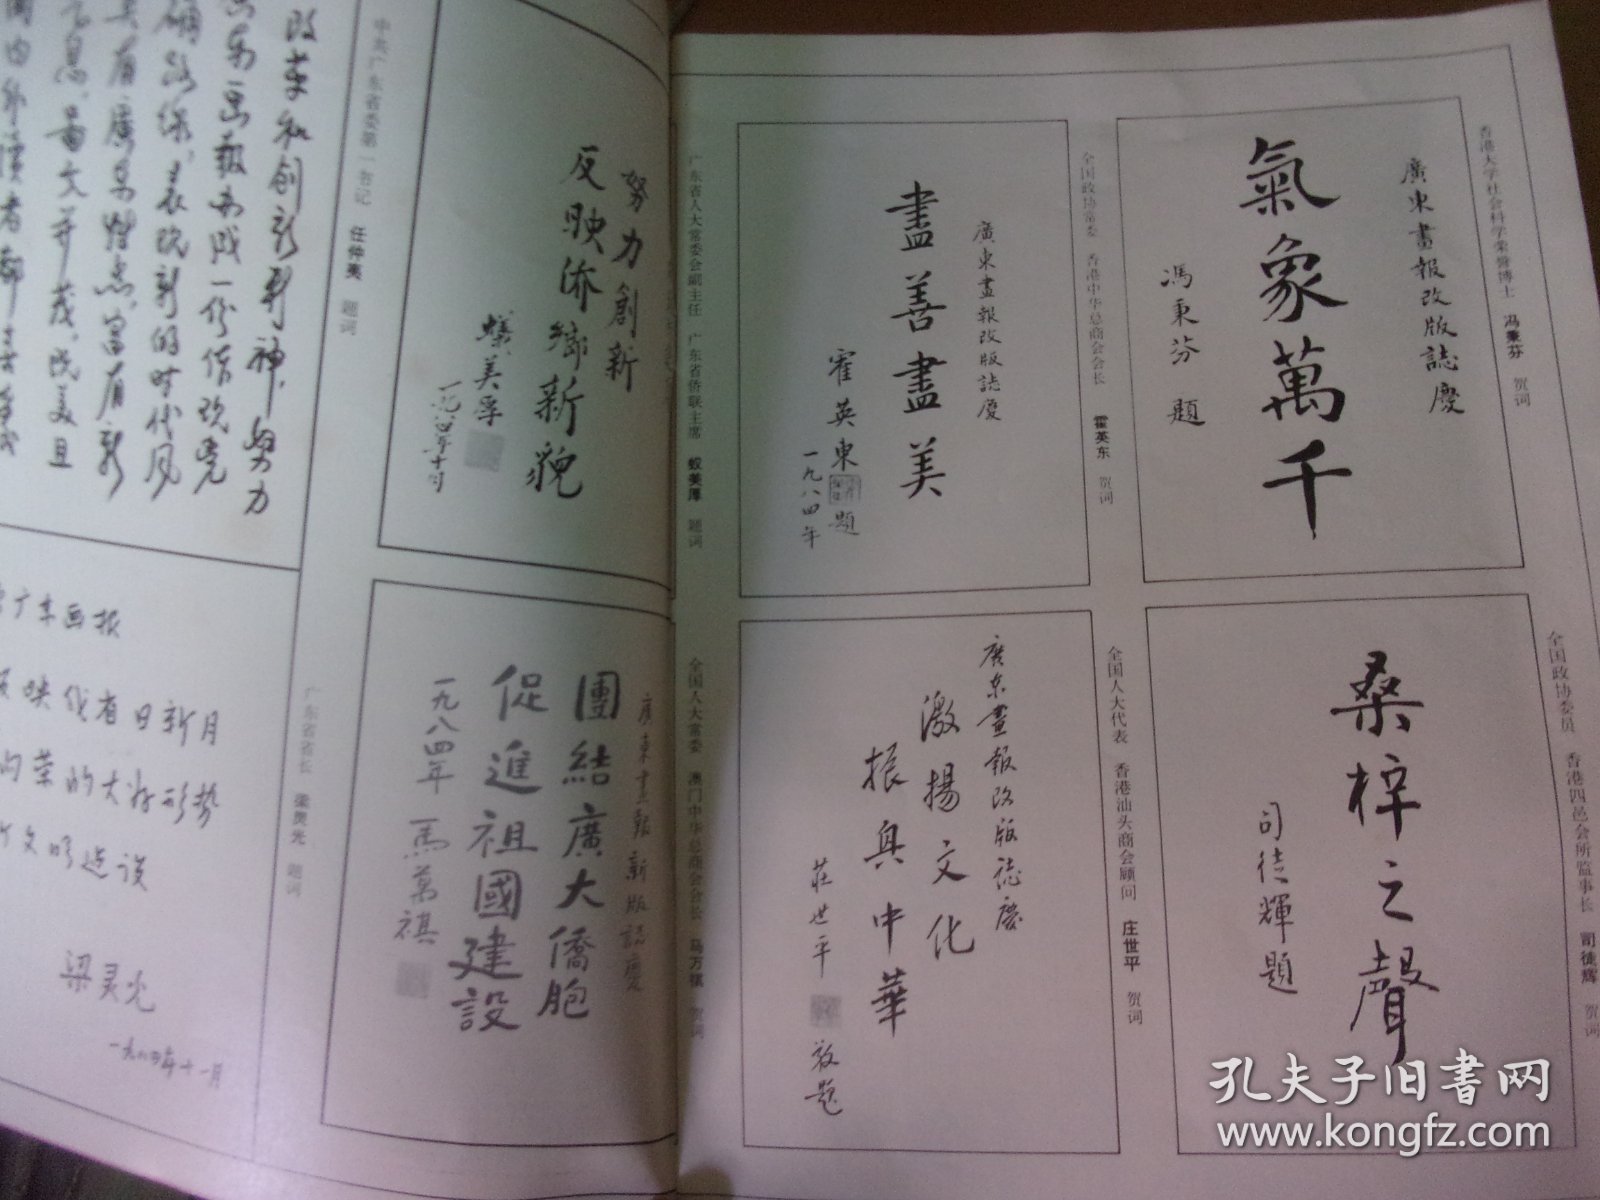 改革和创新精神，努力
确路线，表现新的时代风
中共广东省委第一书记 任仲夷 题词
努力創新
反映僑鄉新貌
蟻美厚
一九八四年十月
广东省人大常委会副主任 广东省侨联主席 蚁美厚 题词
广东画报
反映我省日新月
向荣的大好形势
梁灵光
一九八四年十一月
广东省省长 梁灵光 题词
廣東畫報新版誌慶
團結廣大僑胞
促進祖國建設
一九八四年 馬萬祺
全国人大常委 澳门中华总商会会长 马万祺 贺词
香港大学社会科学荣誉博士 冯秉芬 贺词
廣東畫報改版誌慶
氣象萬千
馮秉芬題
全国政协常委 香港中华总商会会长 霍英东 贺词
廣東畫報改版誌慶
盡善盡美
霍英東題
一九八四年
全国政协委员 香港四邑会所监事长 司徒辉 贺词
桑梓之聲
司徒輝題
全国人大代表 香港汕头商会顾问 庄世平 贺词
廣东畫報改版誌慶
激揚文化
振興中華
莊世平 敬題
孔夫子旧书网
www.kongfz.com